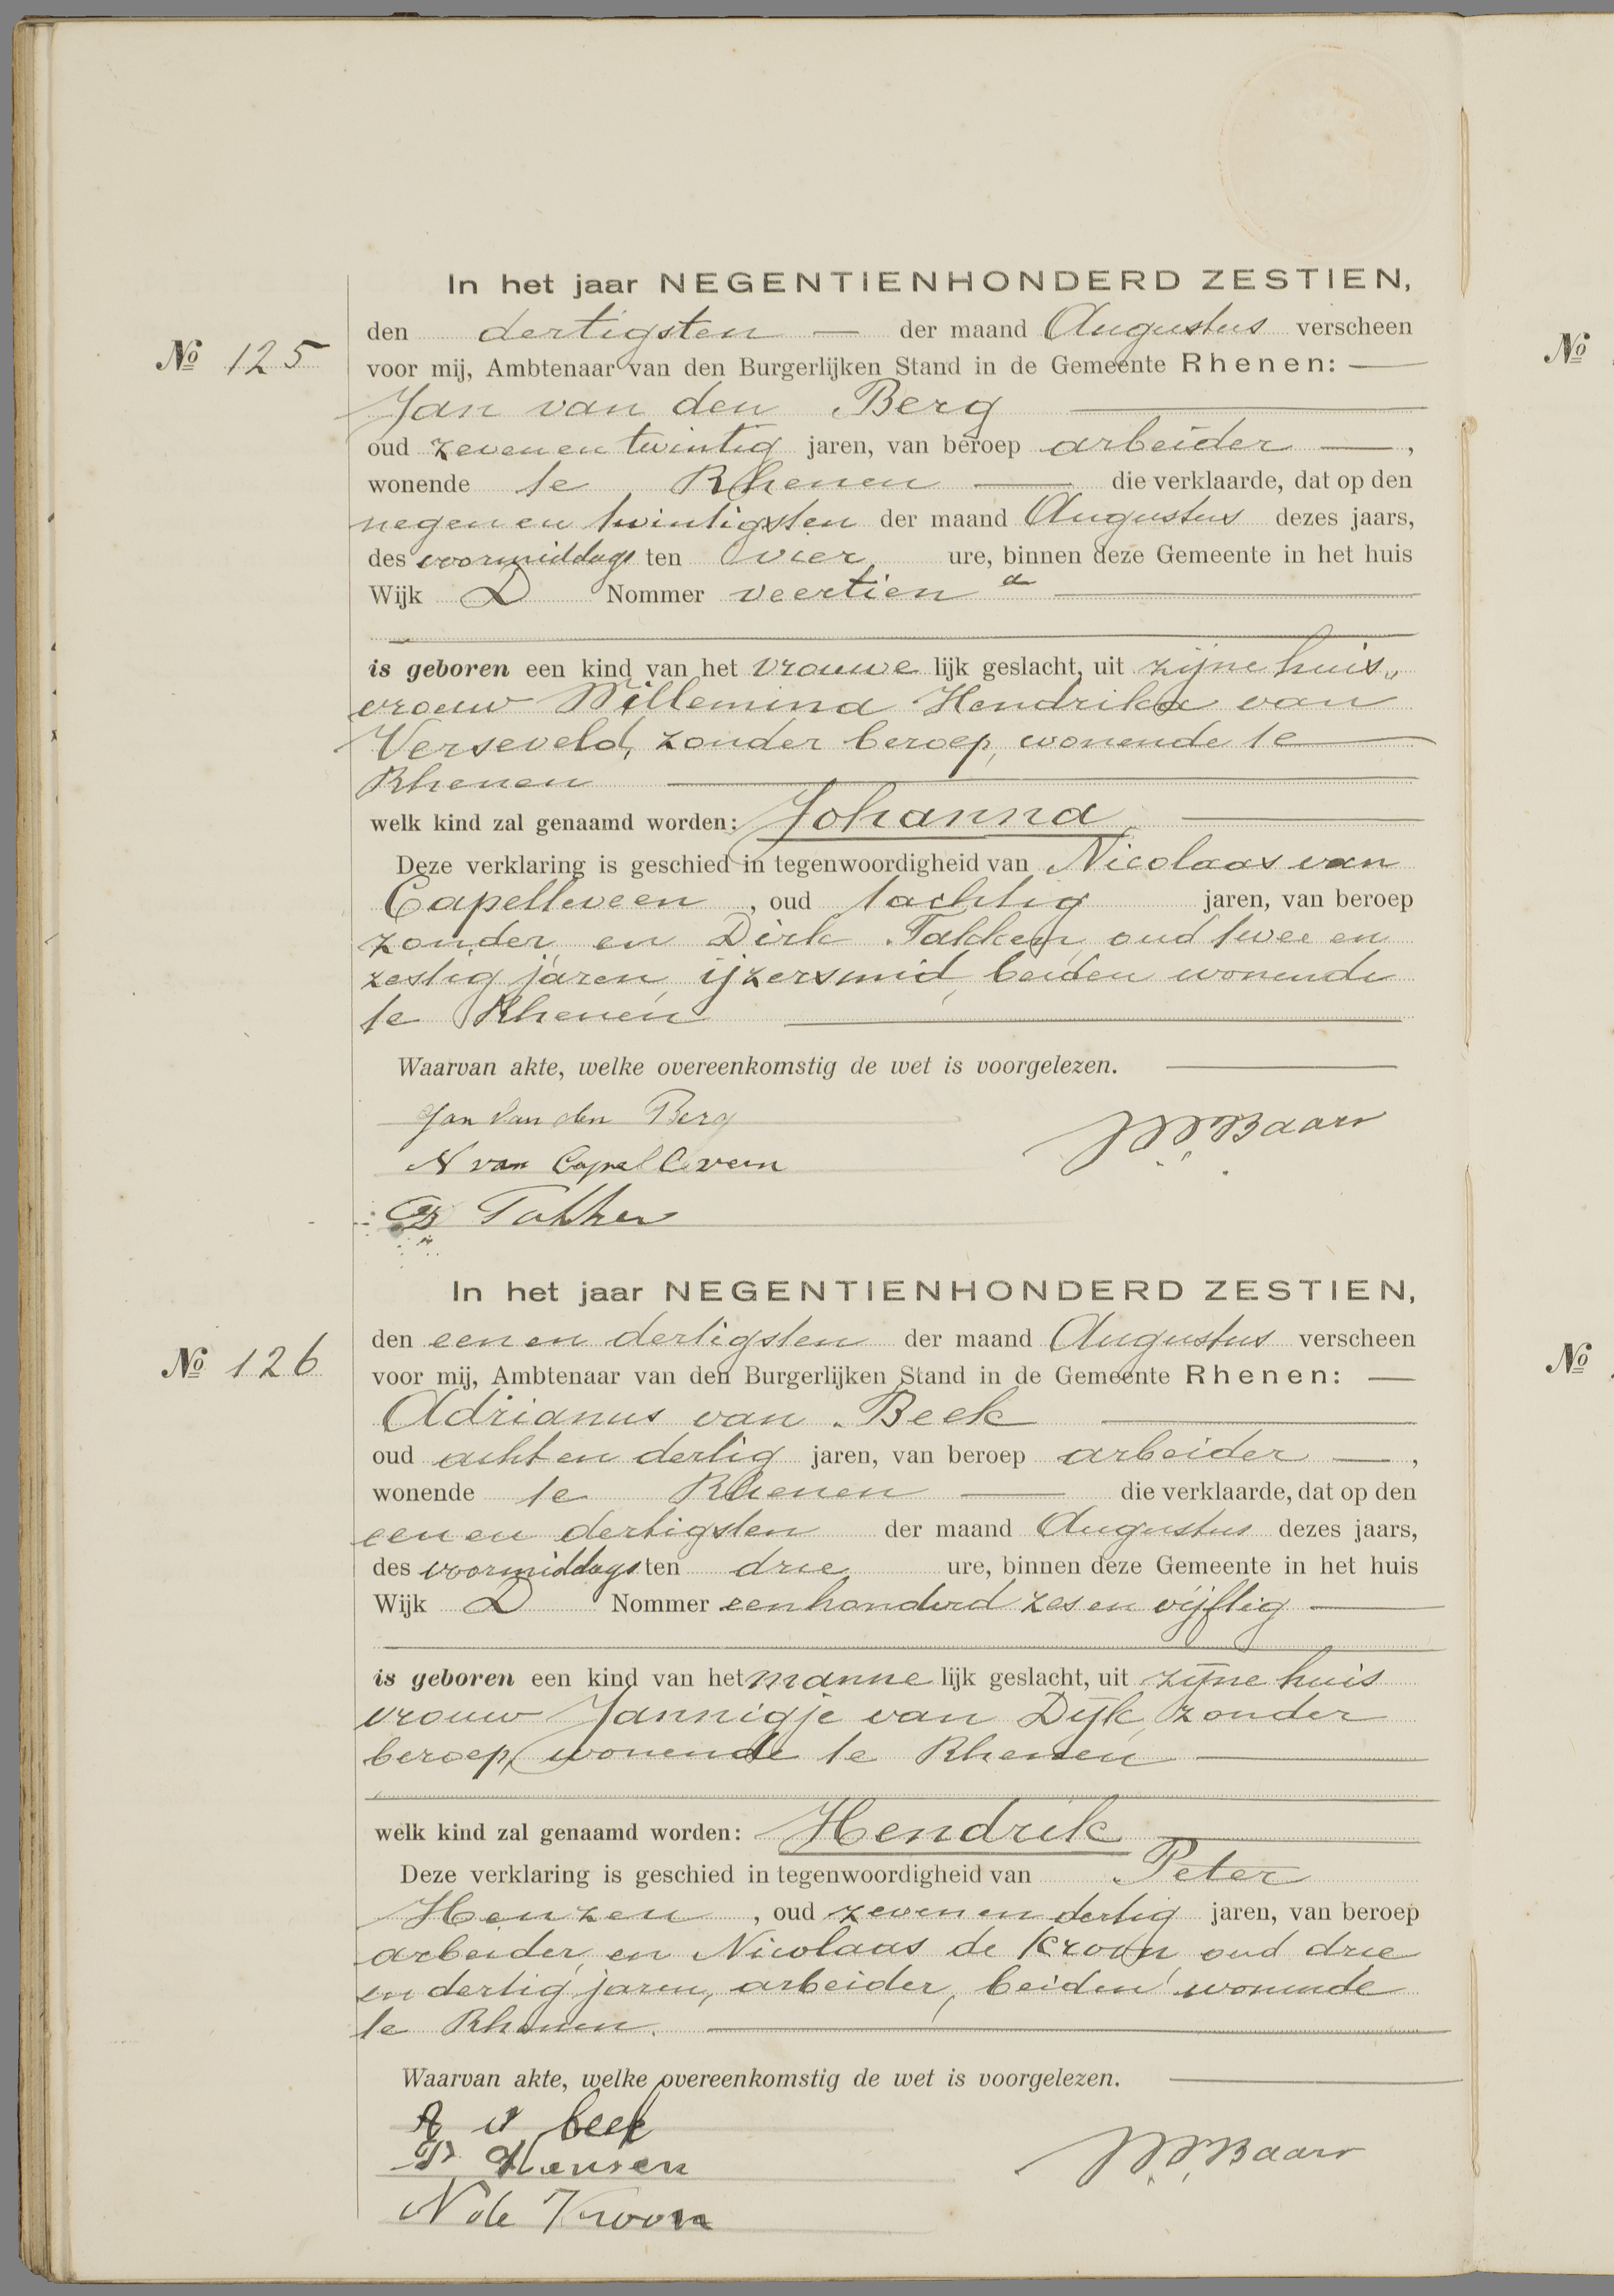 In het jaar NEGENTIENHONDERD ZESTIEN,
den dertigsten — der maand Augustus verscheen
Nº 125
voor mij, Ambtenaar van den Burgerlijken Stand in de Gemeente Rhenen: —
Jan van den Berg
oud zevenen twintig jaren, van beroep arbeider —,
wonende te Rhenen — die verklaarde, dat op den
negen en twintigsten der maand Augustus dezes jaars,
des voormiddags ten vier ure, binnen deze Gemeente in het huis
Wijk D Nommer veertien a
is geboren een kind van het vrouwe lijk geslacht, uit zijne huis„
vrouw Willemina Hendrika van
Verseveld, zonder beroep, wonende te
Rhenen
welk kind zal genaamd worden: Johanna
Deze verklaring is geschied in tegenwoordigheid van Nicolaas van
Capelleveen, oud tachtig jaren, van beroep
zonder, en Dirk Takken, oud twee en
zestig jaren, ijzersmid, beiden wonende
te Rhenen
Waarvan akte, welke overeenkomstig de wet is voorgelezen.
Jan van den Berg
N van Capelleveen
Takken
Baars
In het jaar NEGENTIENHONDERD ZESTIEN,
den eenen dertigsten der maand Augustus verscheen
Nº 126
voor mij, Ambtenaar van den Burgerlijken Stand in de Gemeente Rhenen: —
Adrianus van Beek
oud acht en dertig jaren, van beroep arbeider —,
wonende te Rhenen — die verklaarde, dat op den
eenen dertigsten der maand Augustus dezes jaars,
des voormiddags ten drie ure, binnen deze Gemeente in het huis
Wijk D Nommer eenhonderd zes en vijftig
is geboren een kind van het manne lijk geslacht, uit zijne huis
vrouw Jannigje van Dijk, zonder
beroep, wonende te Rhenen
welk kind zal genaamd worden: Hendrik
Deze verklaring is geschied in tegenwoordigheid van Peter
Henzen, oud zeven en dertig jaren, van beroep
arbeider, en Nicolaas de Kroon, oud drie
en dertig jaren, arbeider, beiden wonende
te Rhenen.
Waarvan akte, welke overeenkomstig de wet is voorgelezen.
A v beek
P Hensen
N de Kroon
Baars
Nº
Nº